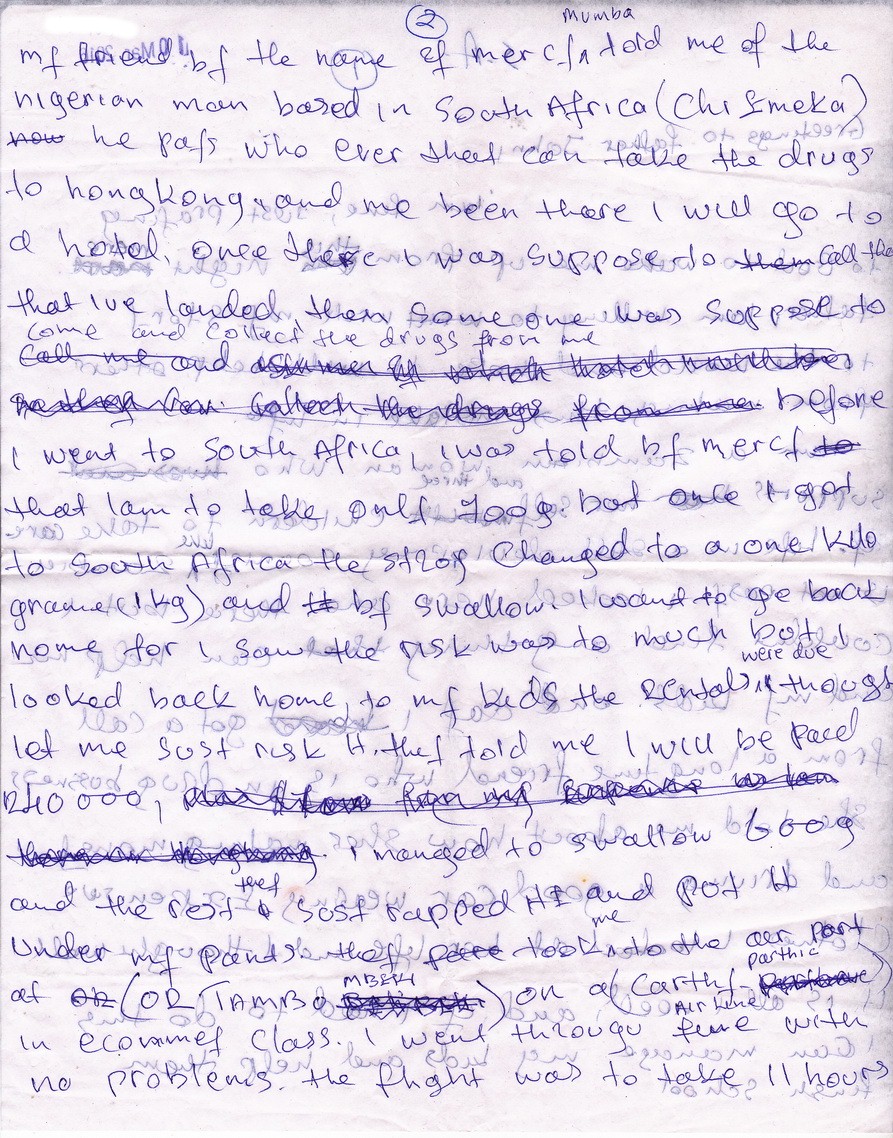 2
my friend by the name of mercy Mumba told me of the
nigerian man based in South Africa (Chi Emeka)
now he pays who ever that can take the drugs
to hongkong, and me been there I will go to
a hotel. once there I was suppose to them call the
that I've landed then some one was suppose to
come and collect the drugs from me
call me and before
I went to South Africa, I was told by mercy to
that I am to take only 700g. but once I got
to South Africa the story changed to a one kilo
grame (1kg) and by swallow. I want to go back
home for I saw the risk was to much but I
looked back home, to my kids the rentals were due I thought
let me just risk it. they told me I will be paid
R40 000,
I manged to swallow 600g
and the rest they just rapped it and put it
under my pants. they took me to the air part
at OR (OR TAMBO MBEKI) on a (Carthy- parthic
Air Line
in economey class. I went through fine with
no problems. the flight was to take 11 hours